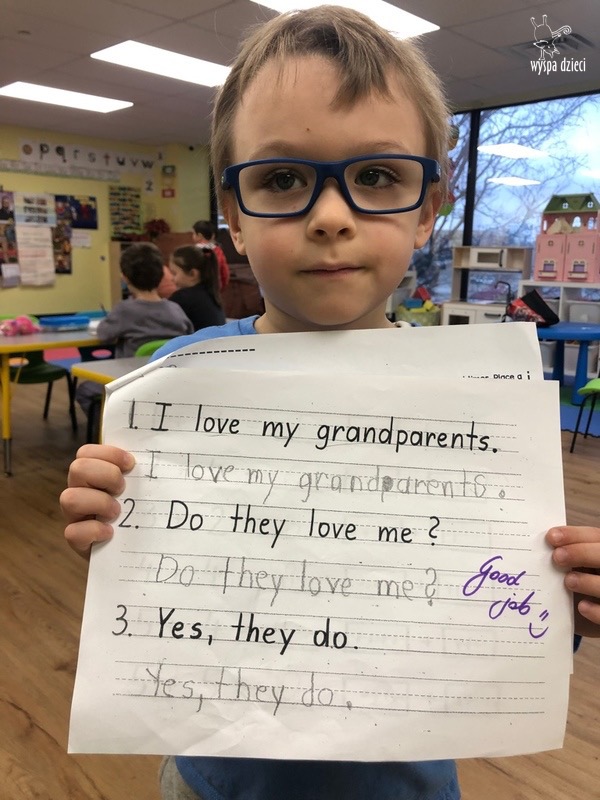 wyspa dzieci
p q r s t u v w
Place a
1. I love my grandparents.
I love my grandparents.
2. Do they love me?
Do they love me?
Good
job
3. Yes, they do.
Yes, they do.